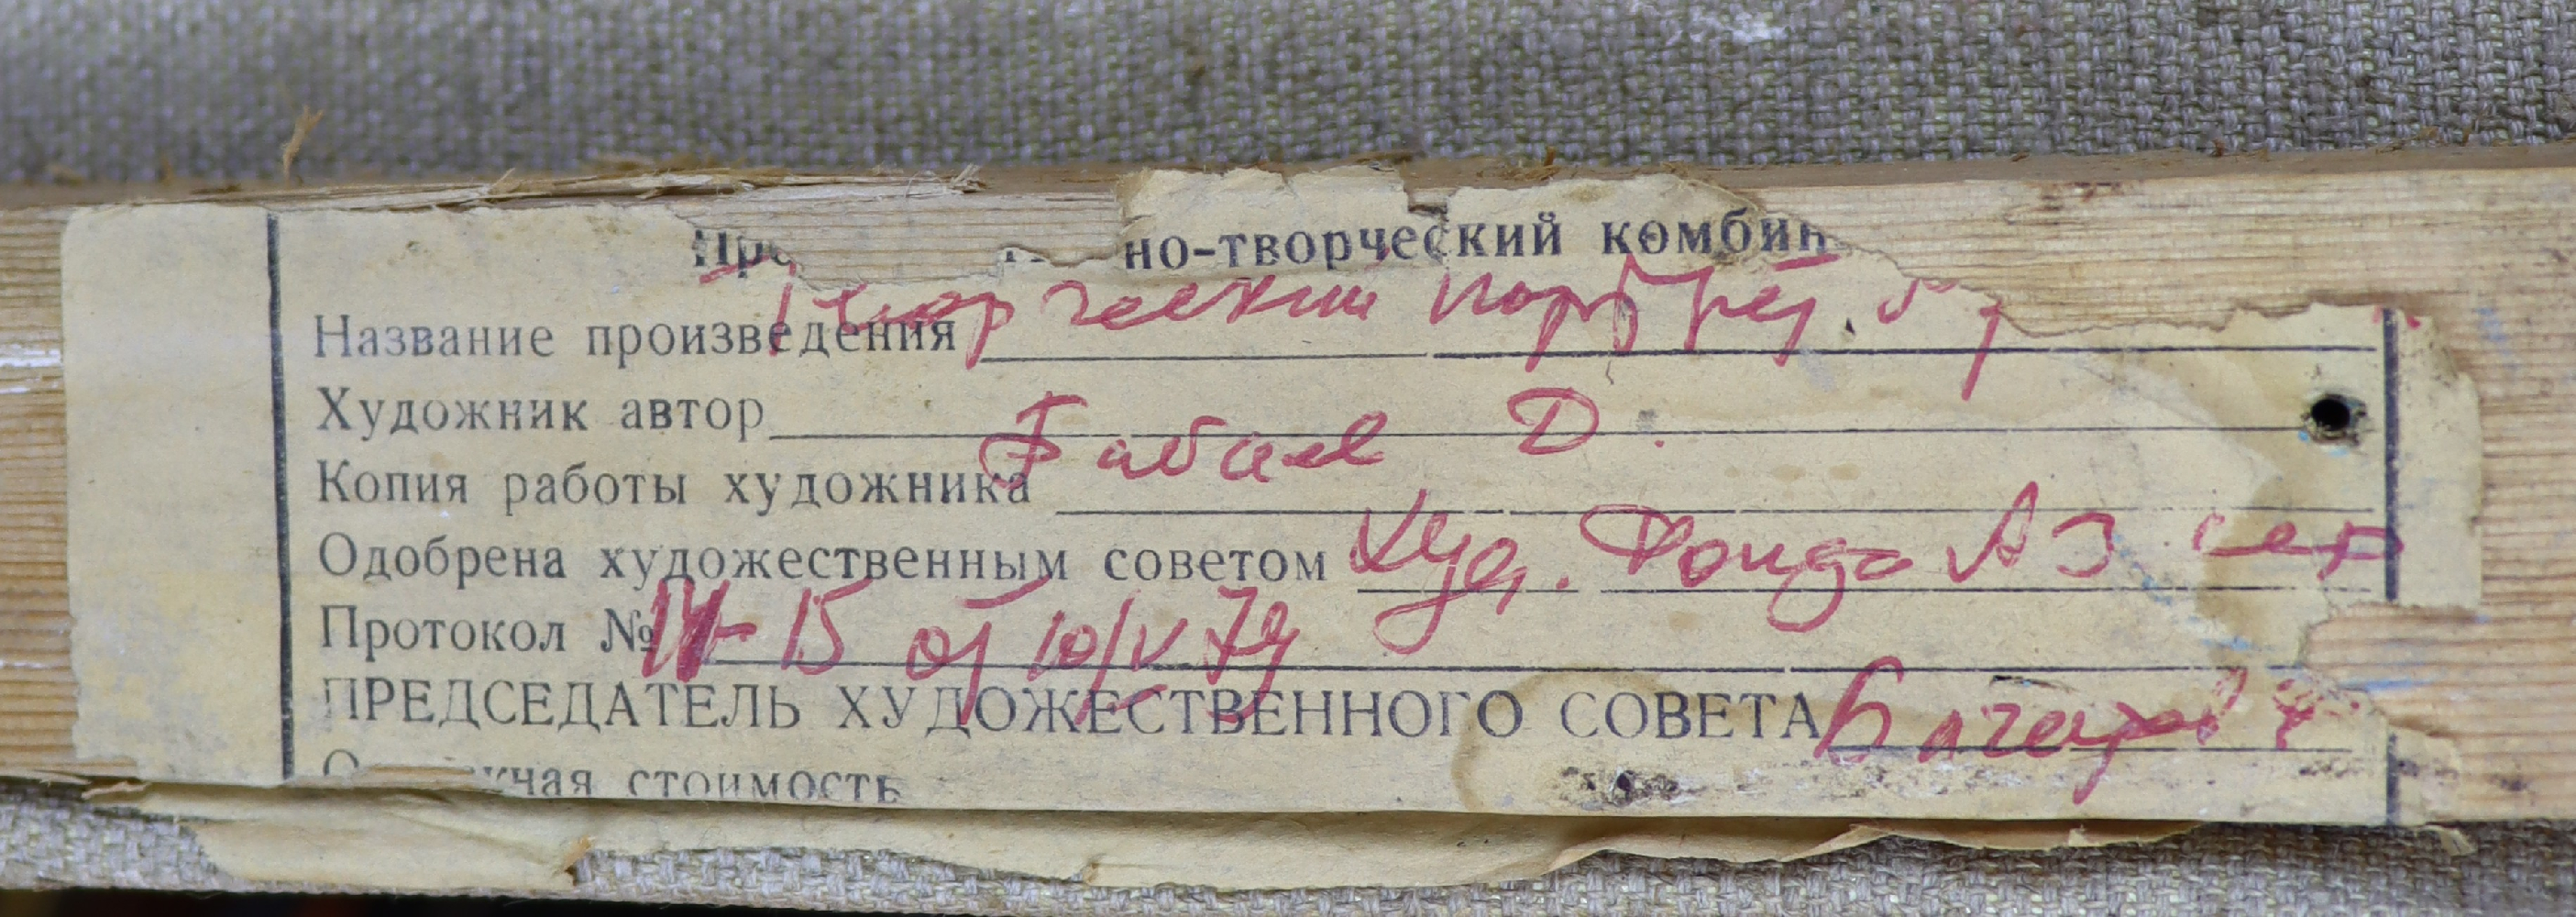 но-творческий комбин
Название произведения Творческий портрет.
Художник автор Бабаев Д.
Копия работы художника
Одобрена художественным советом Худ. Фонда Аз
Протокол № 14-15 от 10/V 79
ПРЕДСЕДАТЕЛЬ ХУДОЖЕСТВЕННОГО СОВЕТА
стоимость